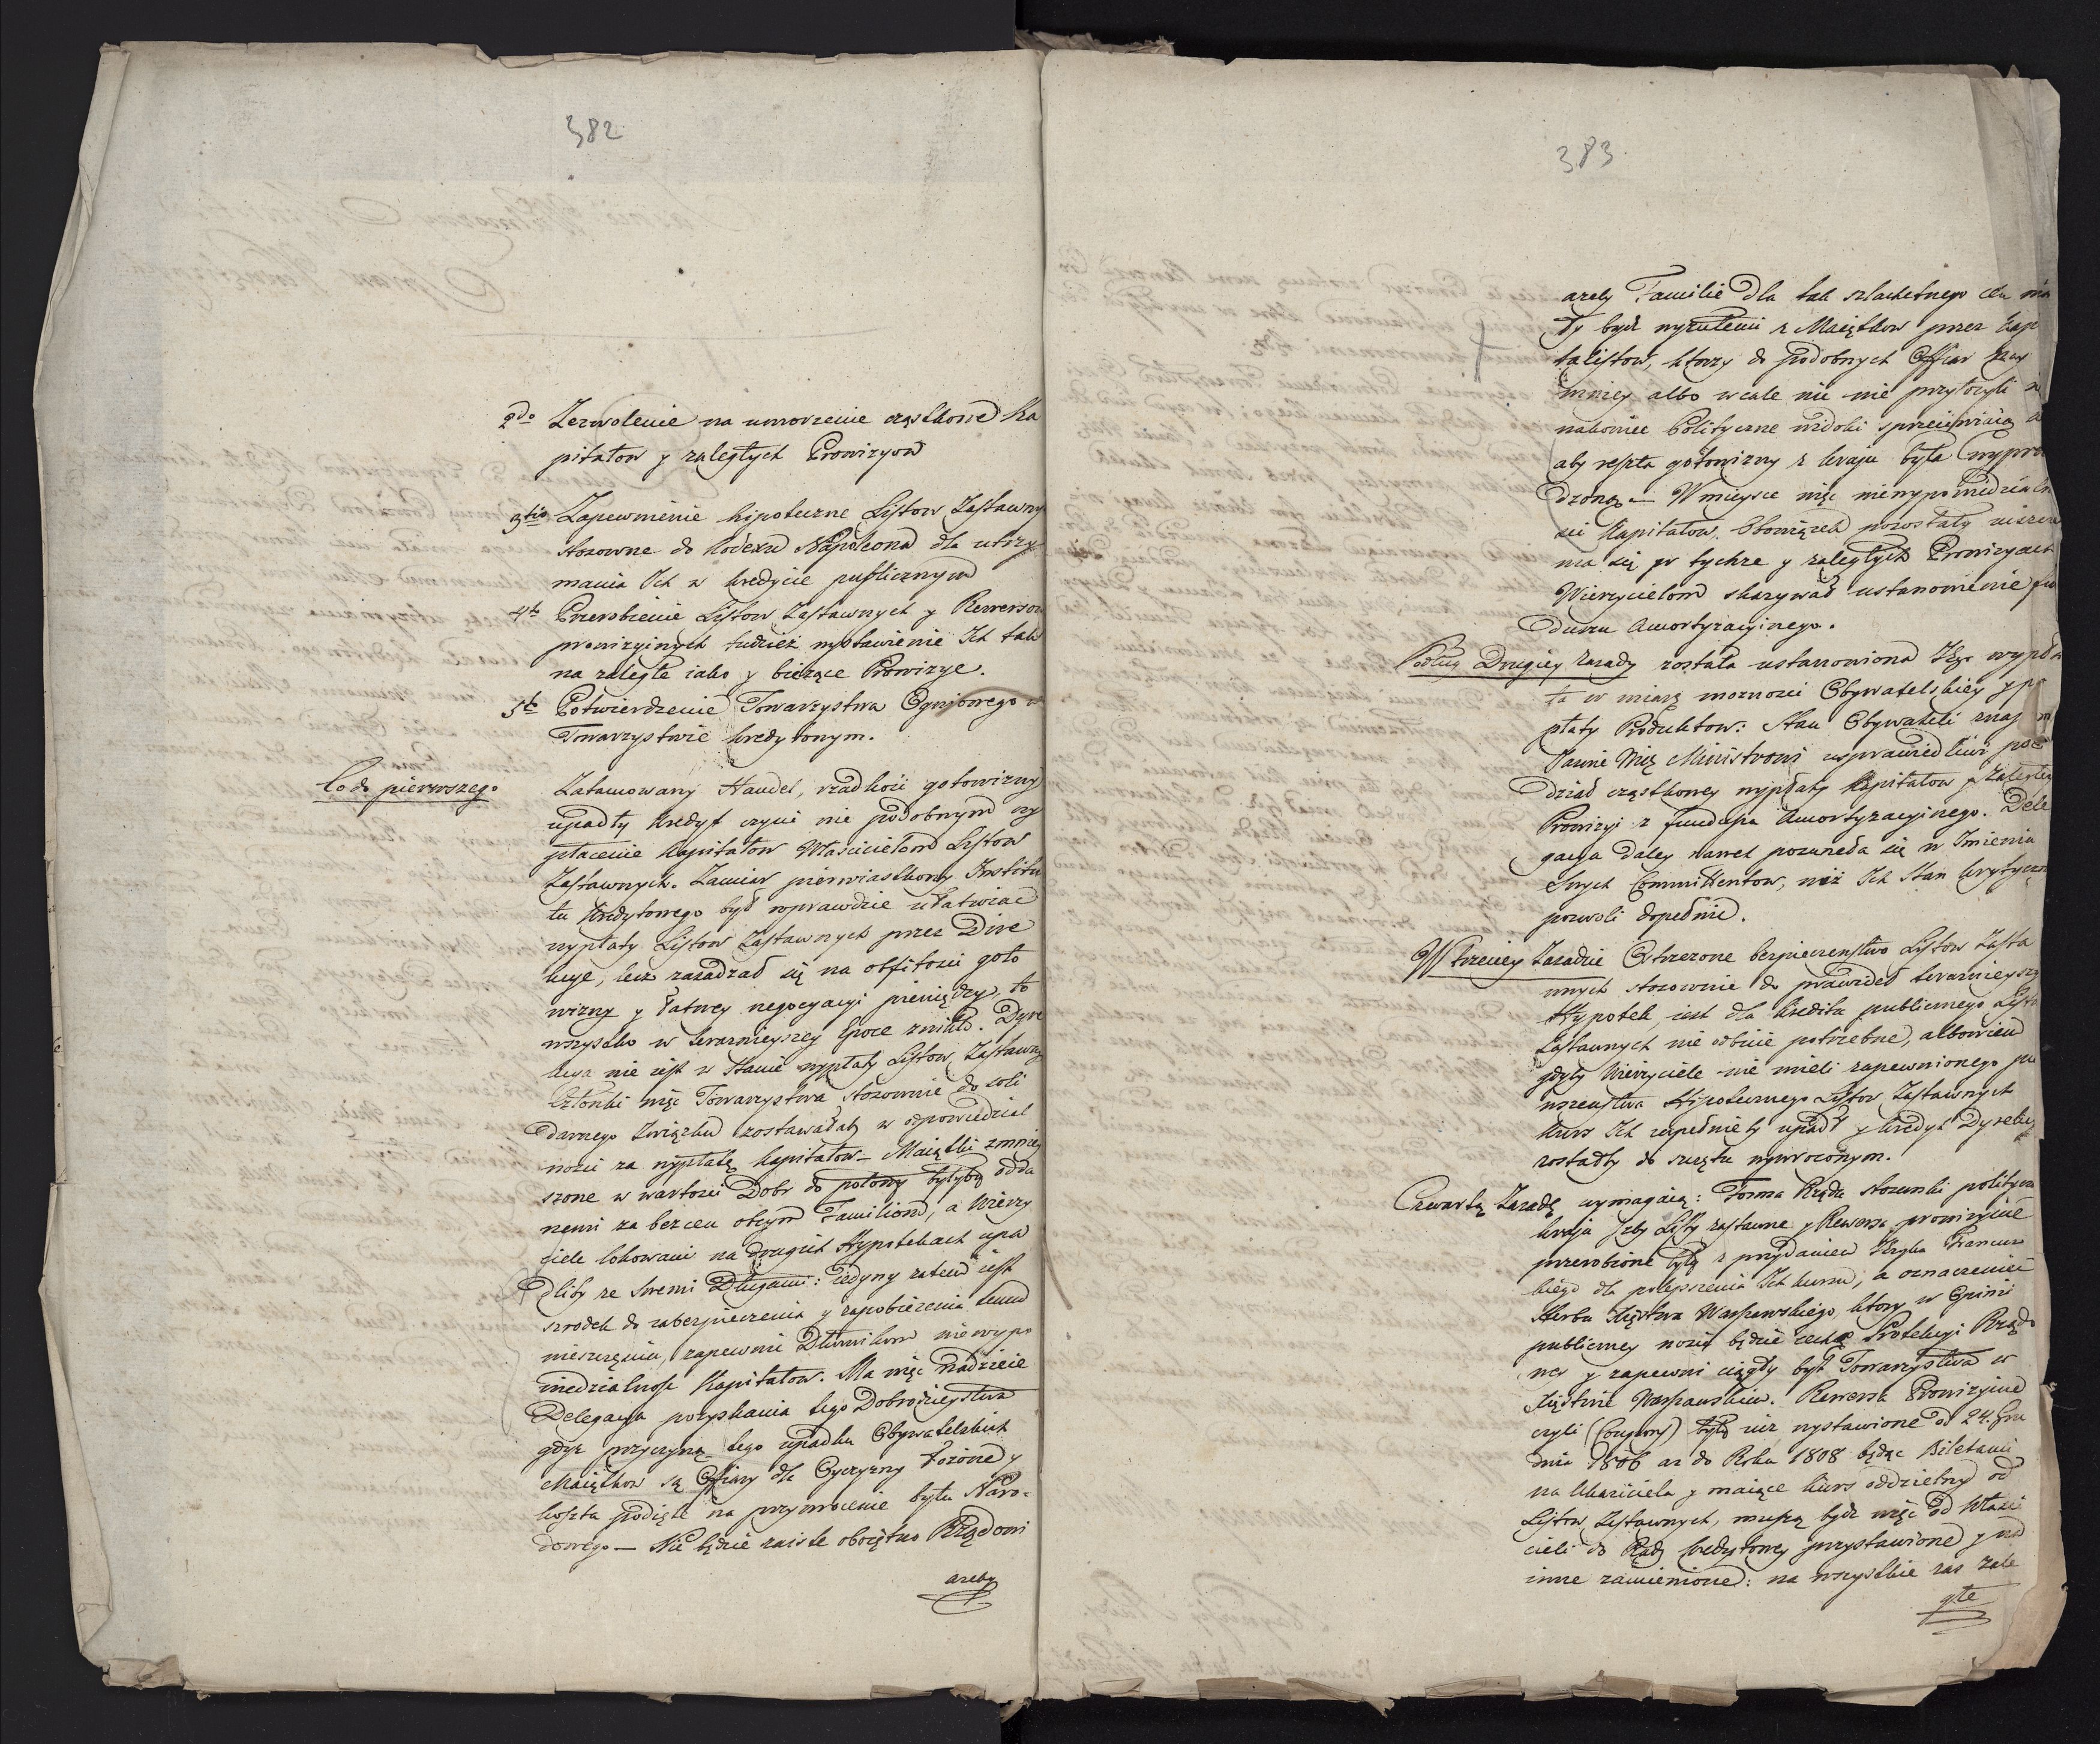 382
2do Zezwolenie na umorzenie cząstkowe Ka
pitałow y zaległych Prowizyow
3tio Zapewnienie hipoteczne Listow Zastawny
stosowne do Kodexu Napoleona dla utrzy
mania Ich w kredycie publicznym
4to Przerobienie Listow Zastawnych y Rewersow
prowizyinych tudzież wystawienie Ich tak
na zaległe iako y bieżące Prowizye.
5to Potwierdzenie Towarzystwa Ogniowego w
Towarzystwie kredytowym.
Co do pierwszego Zatamowany Handel, rzadkość gotowizny
upadły Kredyt czyni nie podobnym wy
płacenie Kapitałow Właścicielom Listow
Zastawnych. Zamiar pierwiastkowy Institu
tu Kredytowego był wprawdzie ułatwiać
wypłaty Listow Zastawnych przez Dire
kcye, lecz zasadzał się na obfitości goto
wizny y łatwey negocyacyi pieniędzy, to
wszystko w teraznieyszey Epoce znikło. Dyre
kcya nie iest w stanie wypłaty Listow Zastawny
Członki więc Towarzystwa stosownie do soli
darnego Związku zostawałaby w odpowiedzial
ności za wypłatę Kapitałow – Maiątki zmniey
szone w wartości Dobr do połowy byłyby odda
nemi za bezcen obcym Familiom, a Wierzy
ciele lokowani na drugich Hypotekach upa
dliby ze swemi Długami: iedyny zatem iest
szrodek do zabezpieczenia y zapobieżenia temu
nieszczęściu, zapewnić Dłużnikom niewypo
wiedzialność Kapitałow. Ma więc nadzieie
Delegacya pozyskania tego Dobrodzieystwa
gdyż przyczyną tego upadku Obywatelskich
Maiątkow są Ofiary dla Oyczyzny łożone y
koszta podięte na przywrocenie bytu Naro-
dowego – Nie będzie zaiste oboiętno Rządowi
ażeby
383
ażeby Familie dla tak szlachetnego celu mia
ły być wyzutemi z Maiątkow przez Kapi
talistow, ktorzy do podobnych Offiar nay
mniey albo wcale nic nie przyłożyli
nakoniec Polityczne widoki sprzeciwiaią
aby reszta gotowizny z kraju była wypro
dzoną – W mieysce więc niewypowiedzialno
ści Kapitałow. Obowiązek pozostały uiszcze
nia się po tychże y zaległych Prowizyach
Wierzycielom skazywał ustanowienie fun
duszu Amortyzacyinego.
Podług Drugiey zasady została ustanowiona Ich wypła
ta w miarę możności Obywatelskiey y po
płaty Produktow: Stan Obywateli znaj
Jaśnie Wię Ministrowi usprawiedliwi po
dział cząstkowey wypłaty Kapitałow y zaległey
Prowizyi z funduszu Amortyzacyinego. Dele
gacya daley nawet posuneła się w Imieniu
Swych Committentow, niż Ich Stan krytyczn
pozwoli dopełnić.
W trzeciey Zasadzie Ostrzeżone bezpieczeństwo Listow Zasta
wnych stosownie do prawideł teraznieyszy
Hypotek, iest dla kredytu publicznego Listo
Zastawnych nieodbicie potrzebne, albowiem
gdyby Wierzyciele nie mieli zapewnionego pie
wszeństwa Hipotecznego Listow Zastawnych
kurs Ich zupełnieby upadł y kredyt Dyrekcy
zostałby do szczętu wywroconym.
Czwartą Zasadę wymagaią: Forma Rządu stosunki polityczn
kraju żeby Listy zastawne y Rewersa prowizyine
przerobione były z przydaniem Języka Francus
kiego dla polepszenia Ich kursu, a oznaczenie
Herbu Xięstwa Warszawskiego, ktory w Opinii
publiczney nosić będzie cechę Protekcyi Rządo
wey y zapewni ciągły byt Towarzystwa w
Xięstwie Warszawskim. Rewersa Prowizyine
czyli (Coupony) były iuż wystawione od 24. Gru
dnia 1806 aż do Roku 1808 będąc Biletami
na Okaziciela y maiące kurs oddzielny od
Listow Zastawnych, muszą bydź więc od Właści
cieli do Rady kredytowey przystawione y na
inne zamienione: na wszystkie zaś zale
głe